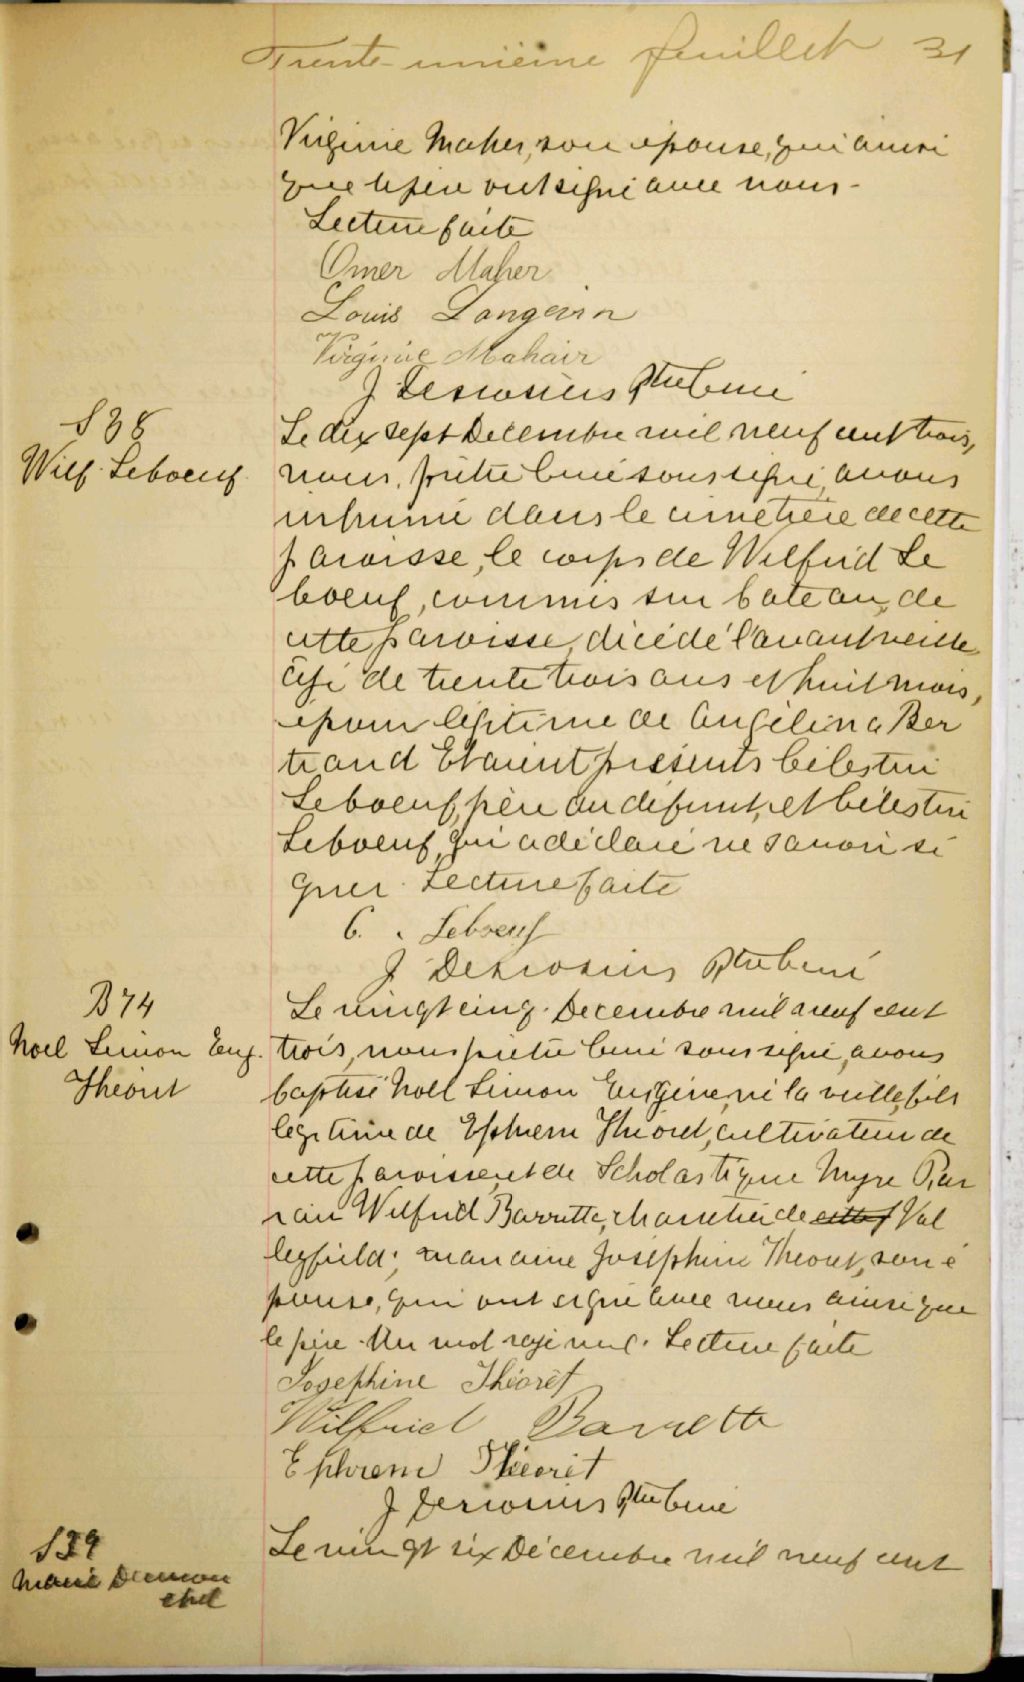 Trente-unième feuillet 31
Virginie Maher, son épouse, qui ainsi
que le père ont signé avec nous -
Lecture faite
Omer Maher
Louis Langevin
Virginie Mahair
J Desrosiers Ptre Curé
S 38
Wilf. Leboeuf
Le dix sept Décembre mil neuf cent trois,
nous, prêtre Curé soussigné, avons
inhumé dans le cimetière de cette
paroisse, le corps de Wilfrid Le
boeuf, commis sur bateau, de
cette paroisse, décédé l'avant veille,
âgé de trente trois ans et huit mois,
époux légitime de Angélina Ber
trand Etaient présents Célestin
Leboeuf, père du défunt, et Célestin
Leboeuf, qui a déclaré ne savoir si
gner. Lecture faite
C. Leboeuf
J Desrosiers Ptre Curé
B 74
Noel Simon Eug.
Théorêt
Le vingt cinq Décembre mil neuf cent
trois, nous prêtre Curé soussigné, avons
baptisé Noel Simon Eugène, né la veille, fils
légitime de Ephrem Théoret, cultivateur de
cette paroisse, et de Scholastique Myre Par
rain Wilfrid Barrette, charretier de Val
leyfield; marraine Joséphine Théoret, son é
pouse, qui ont signé avec nous ainsi que
le père. Un mot rayé nul. Lecture faite
Josephine Théorêt
Wilfrid Barrette
Ephrem Théorêt
J Desrosiers Ptre Curé
S 39
Marie
Le vingt six Décembre mil neuf cent